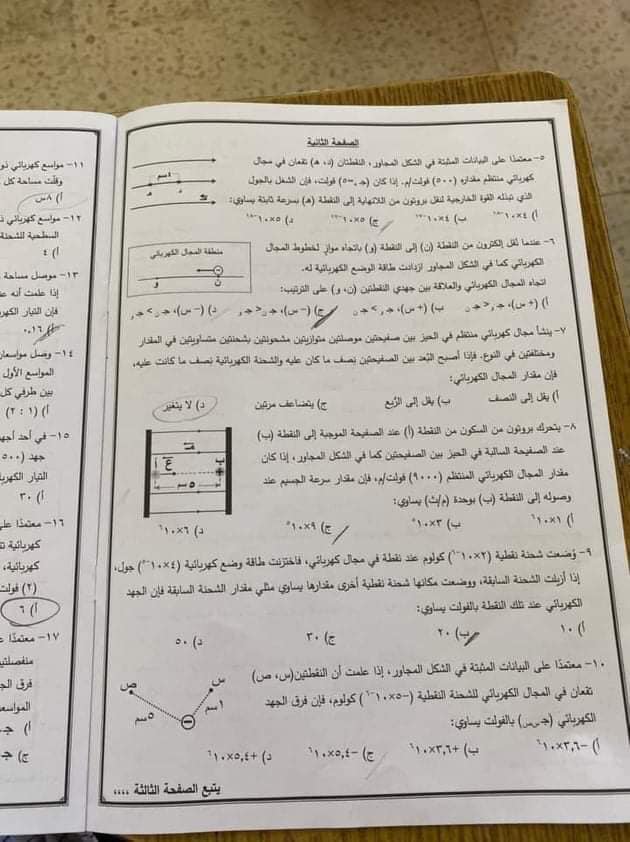 الصفحة الثانية
٥- معتمدًا على البيانات المثبتة في الشكل المجاور، النقطتان (د، هـ) تقعان في مجال
كهربائي منتظم مقداره (٥٠٠) فولت/م. إذا كان (جـ = ٥) فولت، فإن الشغل بالجول
الذي تبذله القوة الخارجية لنقل بروتون من اللانهاية إلى النقطة (هـ) بسرعة ثابتة يساوي:
٤سم
د
هـ
٦- عندما نُقل إلكترون من النقطة (ن) إلى النقطة (و) باتجاه موازٍ لخطوط المجال
الكهربائي كما في الشكل المجاور ازدادت طاقة الوضع الكهربائية له.
اتجاه المجال الكهربائي والعلاقة بين جهدي النقطتين (ن، و) على الترتيب:
منطقة المجال الكهربائي
و ن
أ) (+س)، جـن > جـو ب) (+س)، جـو > جـن ج) (-س)، جـو < جـن د) (-س)، جـن > جـو
٧- ينشأ مجال كهربائي منتظم في الحيز بين صفيحتين موصلتين متوازيتين مشحونتين بشحنتين متساويتين في المقدار
ومختلفتين في النوع. فإذا أصبح البُعد بين الصفيحتين نصف ما كان عليه والشحنة الكهربائية نصف ما كانت عليه،
فإن مقدار المجال الكهربائي:
أ) يقل إلى النصف ب) يقل إلى الرُّبع ج) يتضاعف مرتين د) لا يتغير
٨- يتحرك بروتون من السكون من النقطة (أ) عند الصفيحة الموجبة إلى النقطة (ب)
عند الصفيحة السالبة في الحيز بين الصفيحتين كما في الشكل المجاور، إذا كان
مقدار المجال الكهربائي المنتظم (٩٠٠٠) فولت/م، فإن مقدار سرعة الجسيم عند
وصوله إلى النقطة (ب) بوحدة (م/ث) يساوي:
أ
ب
٥ سم
أ) ١×١٠٦ ب) ٣×١٠٥ ج) ٩×١٠٥ د) ٦×١٠٦
٩- وُضعت شحنة نقطية (٢×١٠-٦) كولوم عند نقطة في مجال كهربائي، فاختزنت طاقة وضع كهربائية (٤×١٠-٥) جول،
إذا أزيلت الشحنة السابقة، ووضعت مكانها شحنة نقطية أخرى مقدارها يساوي مثلي مقدار الشحنة السابقة فإن الجهد
الكهربائي عند تلك النقطة بالفولت يساوي:
أ) ١٠ ب) ٢٠ ج) ٣٠ د) ٥٠
١٠- معتمدًا على البيانات المثبتة في الشكل المجاور، إذا علمت أن النقطتين (س، ص)
تقعان في المجال الكهربائي للشحنة النقطية (-٥×١٠-٦) كولوم، فإن فرق الجهد
الكهربائي (جـس ص) بالفولت يساوي:
س
ص
١سم
٥سم
أ) -٣,٦×١٠٦ ب) +٣,٦×١٠٦ ج) -٥,٤×١٠٦ د) +٥,٤×١٠٦
يتبع الصفحة الثالثة ،،،،
١١- مواسع كهربائي ذو
وقلّت مساحة كل
أ) ٨س
١٢- مواسع كهربائي ذ
السطحية للشحنة
أ) ٤
١٣- موصل مساحة
إذا علمت أنه
فإن التيار الكهر
أ) ٠,١٦
١٤- وصل مواسعان
المواسع الأول
بين طرفي كل
أ) (١ : ٢)
١٥- في أحد أجه
جهد (٥٠٠
التيار الكهربا
أ) ٣٠
١٦- معتمدًا على
كهربائية
كهربائية،
(٢) فولت
أ) ٦
١٧- معتمدًا
منفصلتين
فرق الجهد
المواسع
أ) جـ
ج) جـ